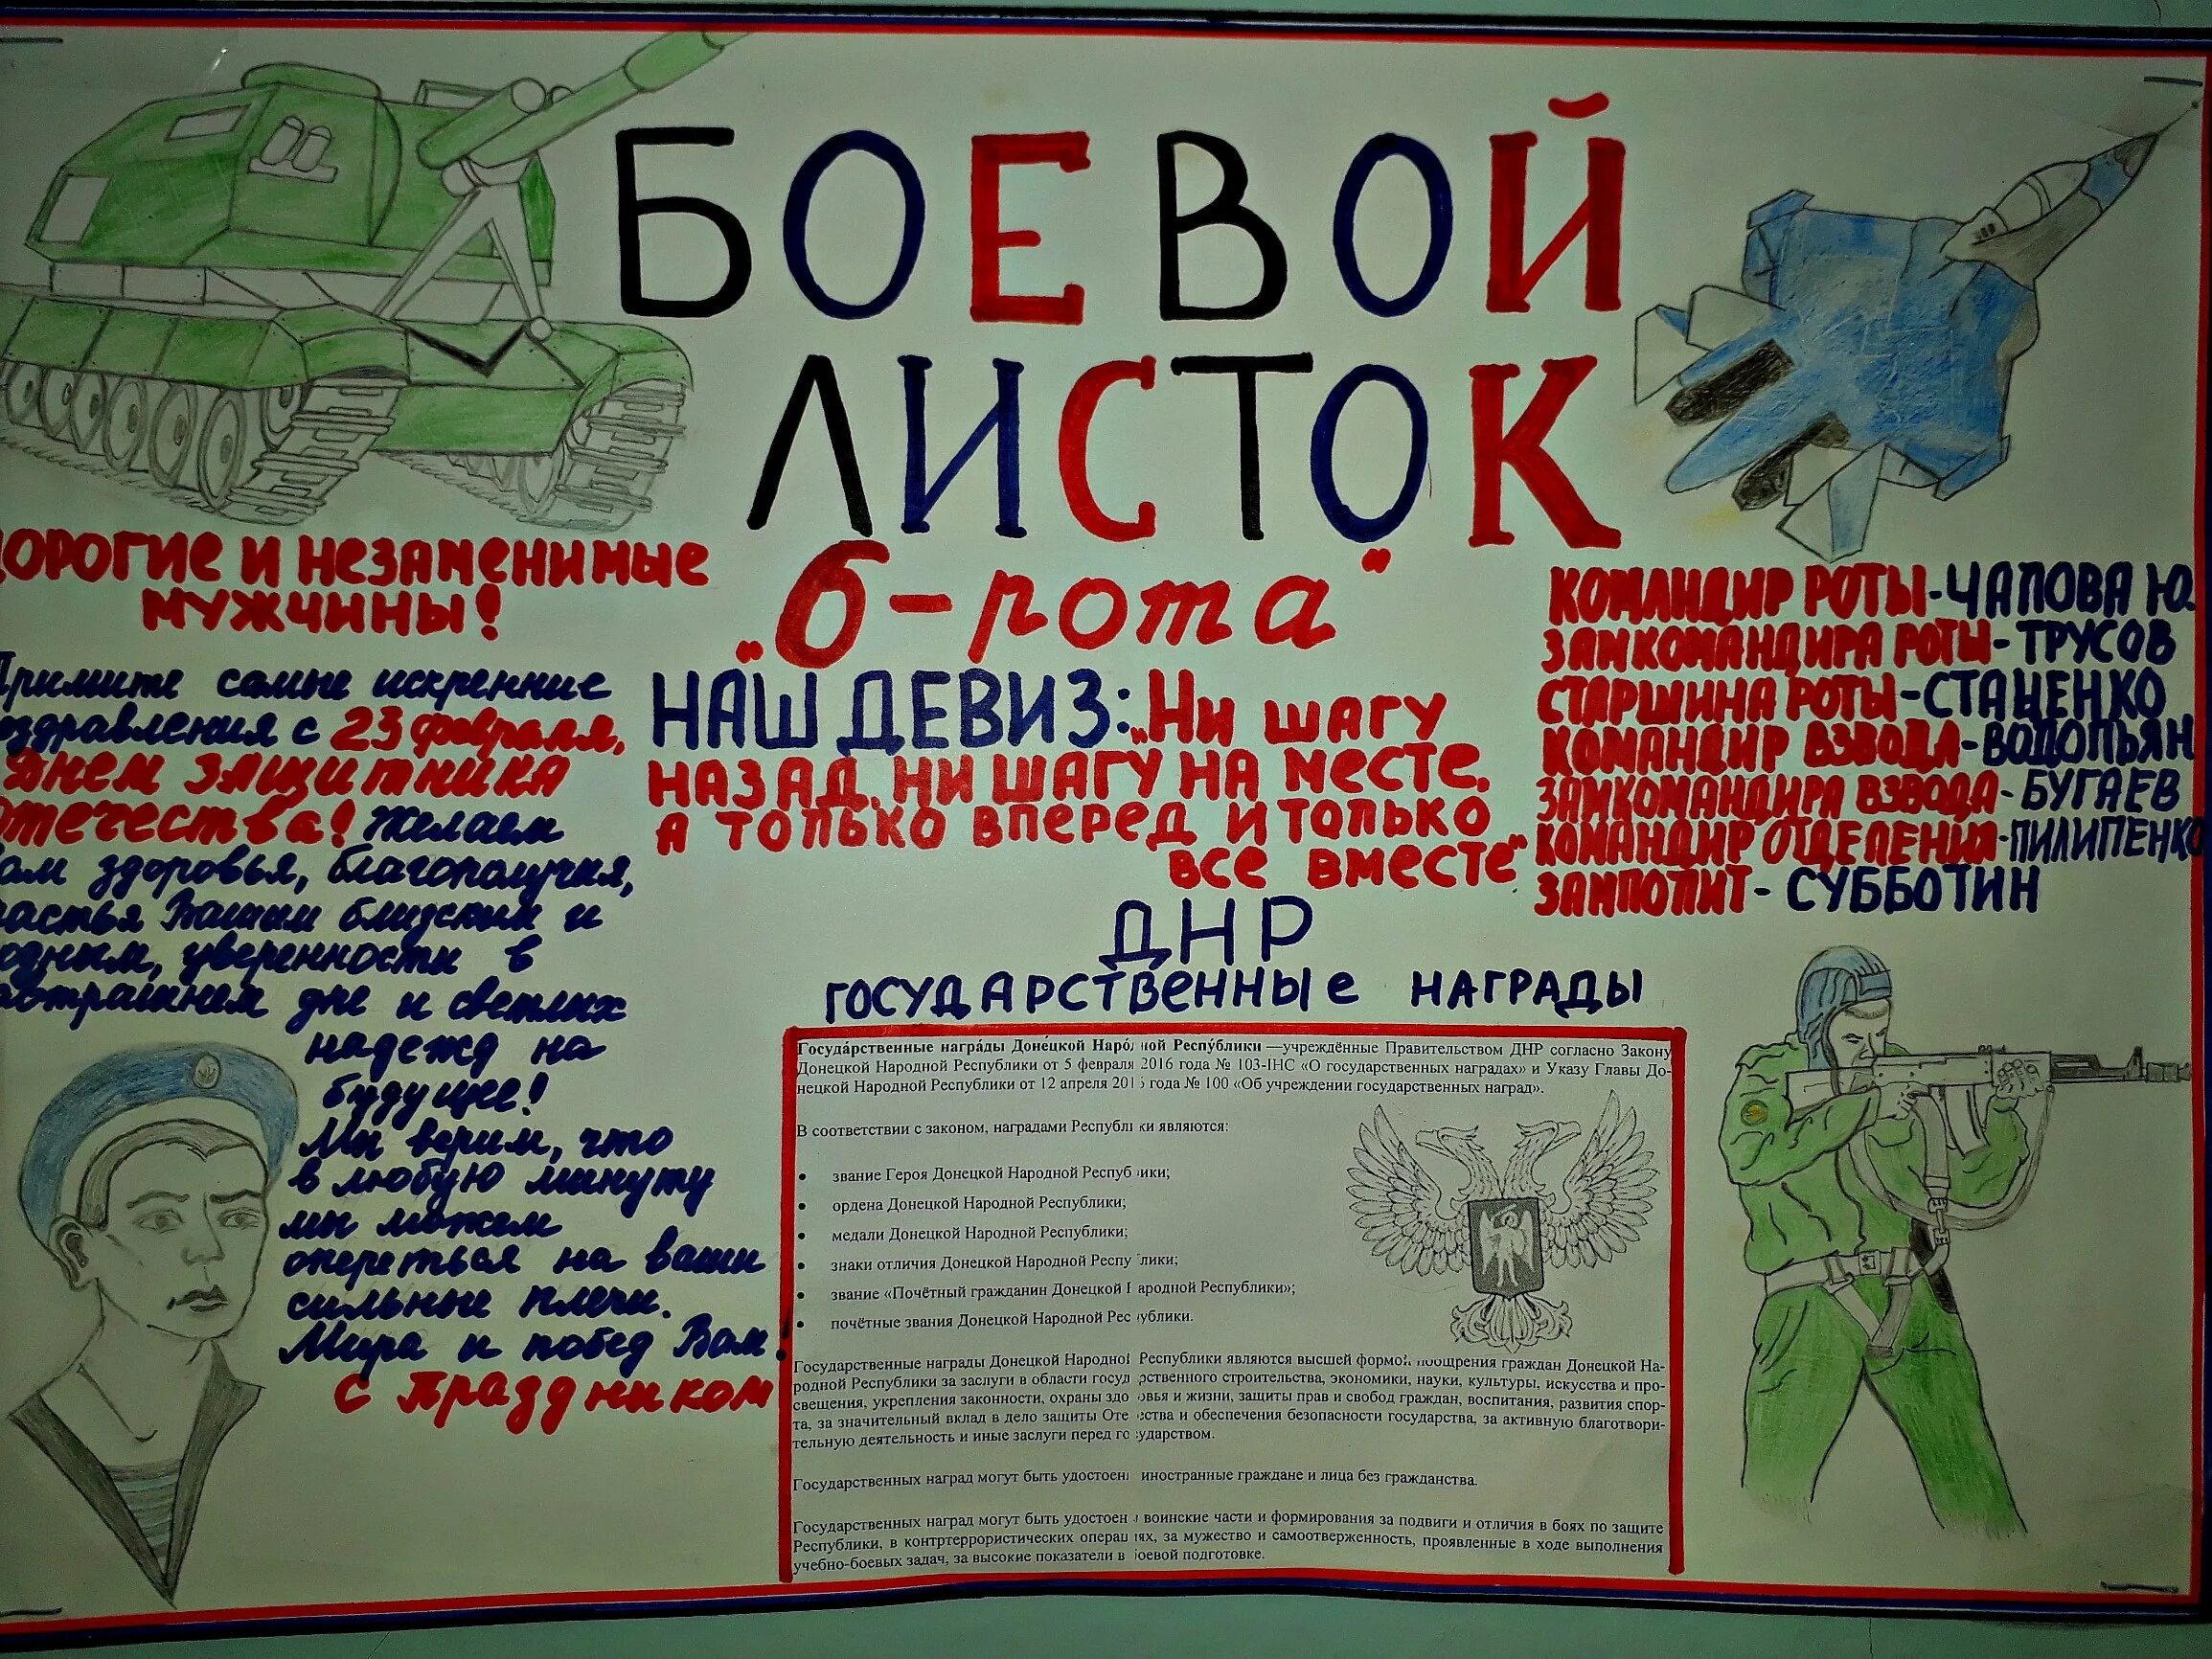 БОЕВОЙ
ЛИСТОК
"6-рота"
НАШ ДЕВИЗ: „Ни шагу
назад, ни шагу на месте,
а только вперед и только
все вместе"
ОРОГИЕ и незаменимые
мужчины!
Примите самые искренние
оздравления с 23 февраля,
днем защитника
отечества! Желаем
ам здоровья, благополучия,
частья Вашим близким и
одным, уверенности в
автрашнем дне и светлых
надежд на
будущее!
Мы верим, что
в любую минуту
мы можем
опереться на ваши
сильные плечи.
Мира и побед Вам!
С праздником
КОМАНДИР РОТЫ-ЧАПОВА Ю.
ЗАМКОМАНДИРА РОТЫ-ТРУСОВ
СТАРШИНА РОТЫ-СТАЦЕНКО
КОМАНДИР ВЗВОДА-ВОДОПЬЯН
ЗАМКОМАНДИРА ВЗВОДА-БУГАЕВ
КОМАНДИР ОТДЕЛЕНИЯ-ПИЛИПЕНКО
ЗАМПОЛИТ-СУББОТИН
ДНР
ГОСУДАРСТВЕННЫЕ НАГРАДЫ
Госуда́рственные награ́ды Доне́цкой Наро́дной Респу́блики —учреждённые Правительством ДНР согласно Закону
Донецкой Народной Республики от 5 февраля 2016 года № 103-IНС «О государственных наградах» и Указу Главы До-
нецкой Народной Республики от 12 апреля 2015 года № 100 «Об учреждении государственных наград».
В соответствии с законом, наградами Республики являются:
• звание Героя Донецкой Народной Республики;
• ордена Донецкой Народной Республики;
• медали Донецкой Народной Республики;
• знаки отличия Донецкой Народной Республики;
• звание «Почётный гражданин Донецкой Народной Республики»;
• почётные звания Донецкой Народной Республики.
Государственные награды Донецкой Народной Республики являются высшей формой поощрения граждан Донецкой На-
родной Республики за заслуги в области государственного строительства, экономики, науки, культуры, искусства и про-
свещения, укрепления законности, охраны здоровья и жизни, защиты прав и свобод граждан, воспитания, развития спор-
та, за значительный вклад в дело защиты Отечества и обеспечения безопасности государства, за активную благотвори-
тельную деятельность и иные заслуги перед государством.
Государственных наград могут быть удостоены иностранные граждане и лица без гражданства.
Государственных наград могут быть удостоены воинские части и формирования за подвиги и отличия в боях по защите
Республики, в контртеррористических операциях, за мужество и самоотверженность, проявленные в ходе выполнения
учебно-боевых задач, за высокие показатели в боевой подготовке.